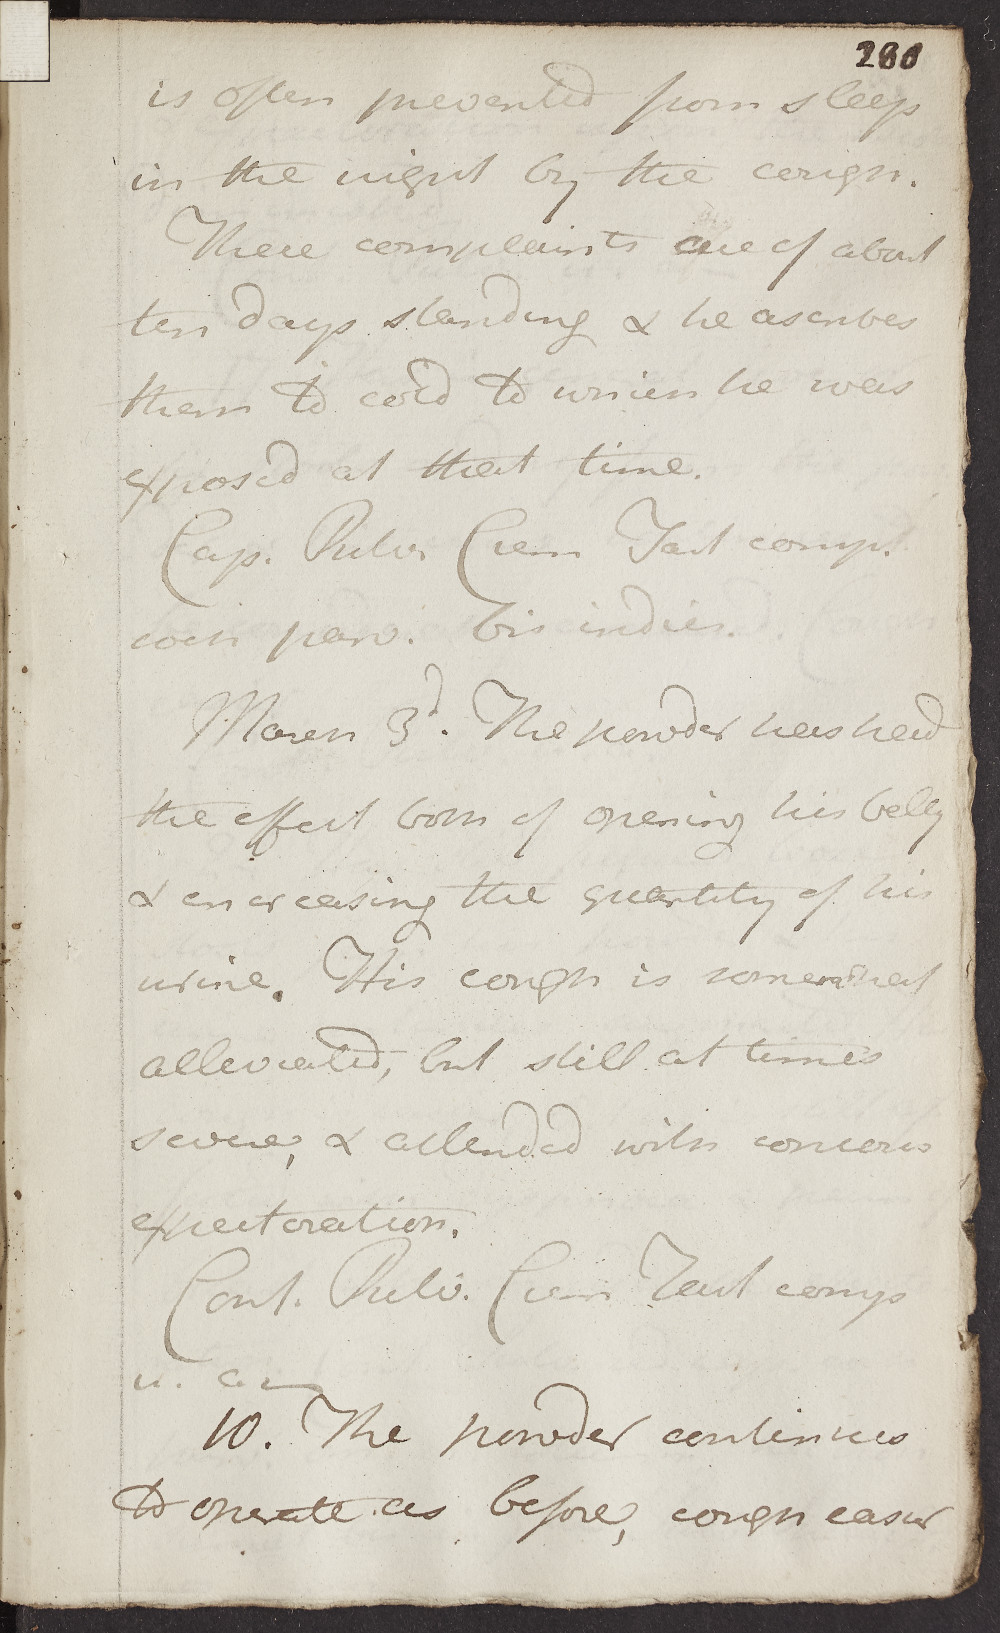 is often prevented from sleep
in the night by the cough.
These complaints are of about
ten days standing & he ascribes
them to cold to which he was
exposed at that time.
Cap. Pulv. Crem Tart comp.
coch parv. bis indies.
March 3d. The powder has had
the effect both of opening his belly
& encreasing the quantity of his
urine. His cough is somewhat
alleviated, but still at times
severe, & attended with copious
expectoration.
Cont. Pulv. Crem Tart comp
u. a
10. The powder continues
to operate as before, cough easier